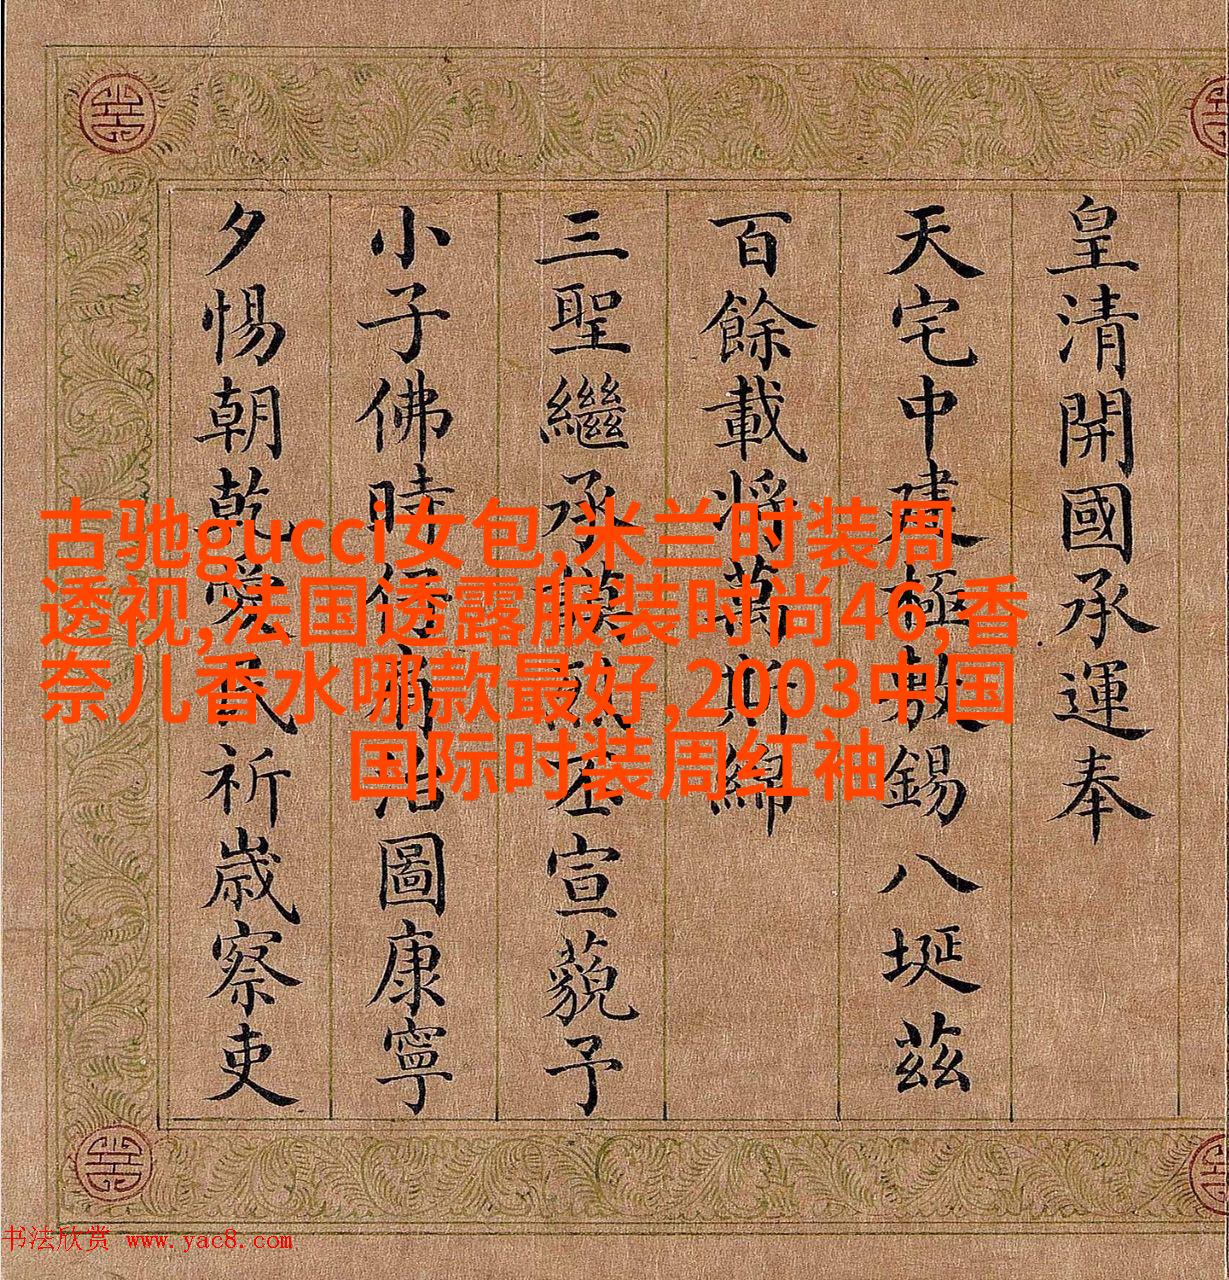 皇清開國承運奉
天宅中建極敷錫八埏茲
百餘載將萬斯綿
三聖繼承模丕宣藐予
小子佛時治圖康寧
夕惕朝乾愛民祈歲察吏
古驰gucci女包,米兰时装周
透视,法国透露服装时尚46,香
奈儿香水哪款最好,2003中国
国际时装周红袖
书法欣赏 www.yac8.com